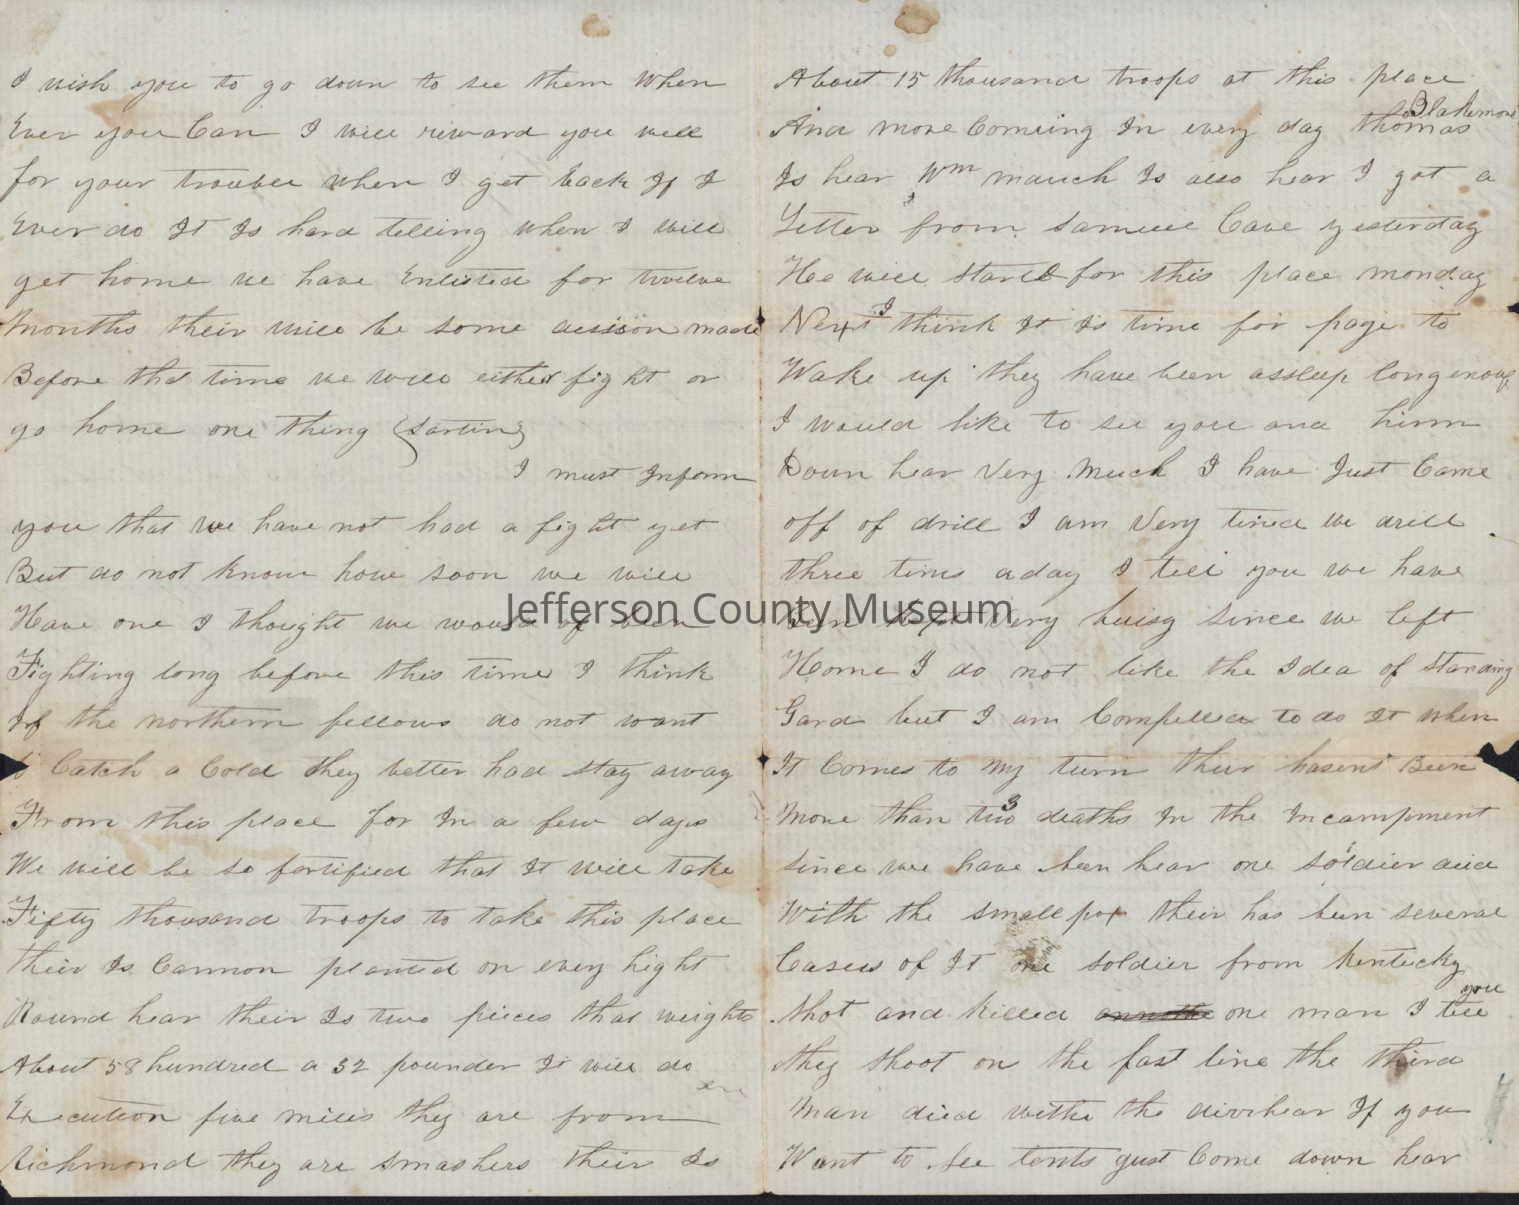 I wish you to go down to see them When
Ever you Can I will reward you well
for your trouble when I get back If I
Ever do It Is hard telling when I will
get home we have Enlisted for twelve
months their will be some desision made
Before that time we will either fight or
go home one thing (sartin)
I must Inform
you that we have not had a fight yet
But do not know how soon we will
Have one I thought we would of been
Fighting long before this time I think
If the northern fellows do not want
to Catch a Cold they better had stay away
From this place for In a few days
We will be so fortified that It will take
Fifty thousand troops to take this place
their Is Cannon planted on every hight
Round hear their Is two pieces that weights
About 58 hundred a 32 pounder It will do
Execution five miles they are from
Richmond they are smashers their Is
About 15 thousand troops at this place
And more Comeing In every day thomas Blakemore
Is hear Wm mauck Is also hear I got a
Letter from Samuel Cave yesterday
He will start for this place monday
Next I think It Is time for page to
Wake up they have been assleep long enough
I would like to see you and him
Down hear Very Much I have Just Came
off of drill I am Very tired we drill
three tims a day I tell you we have
Been kept Very buisy since we left
Home I do not like the Idea of standing
Gard but I am Compelled to do It when
It Comes to my turn their hasent Been
More than two 3 deaths In the Incampment
since we have been hear one soldier died
With the small pox their has been several
Cases of It one soldier from Kentucky
shot and killed one man I tell you
they shoot on the fast line the third
Man died withe the dirrhear If you
Want to See tents gust Come down hear
Jefferson County Museum